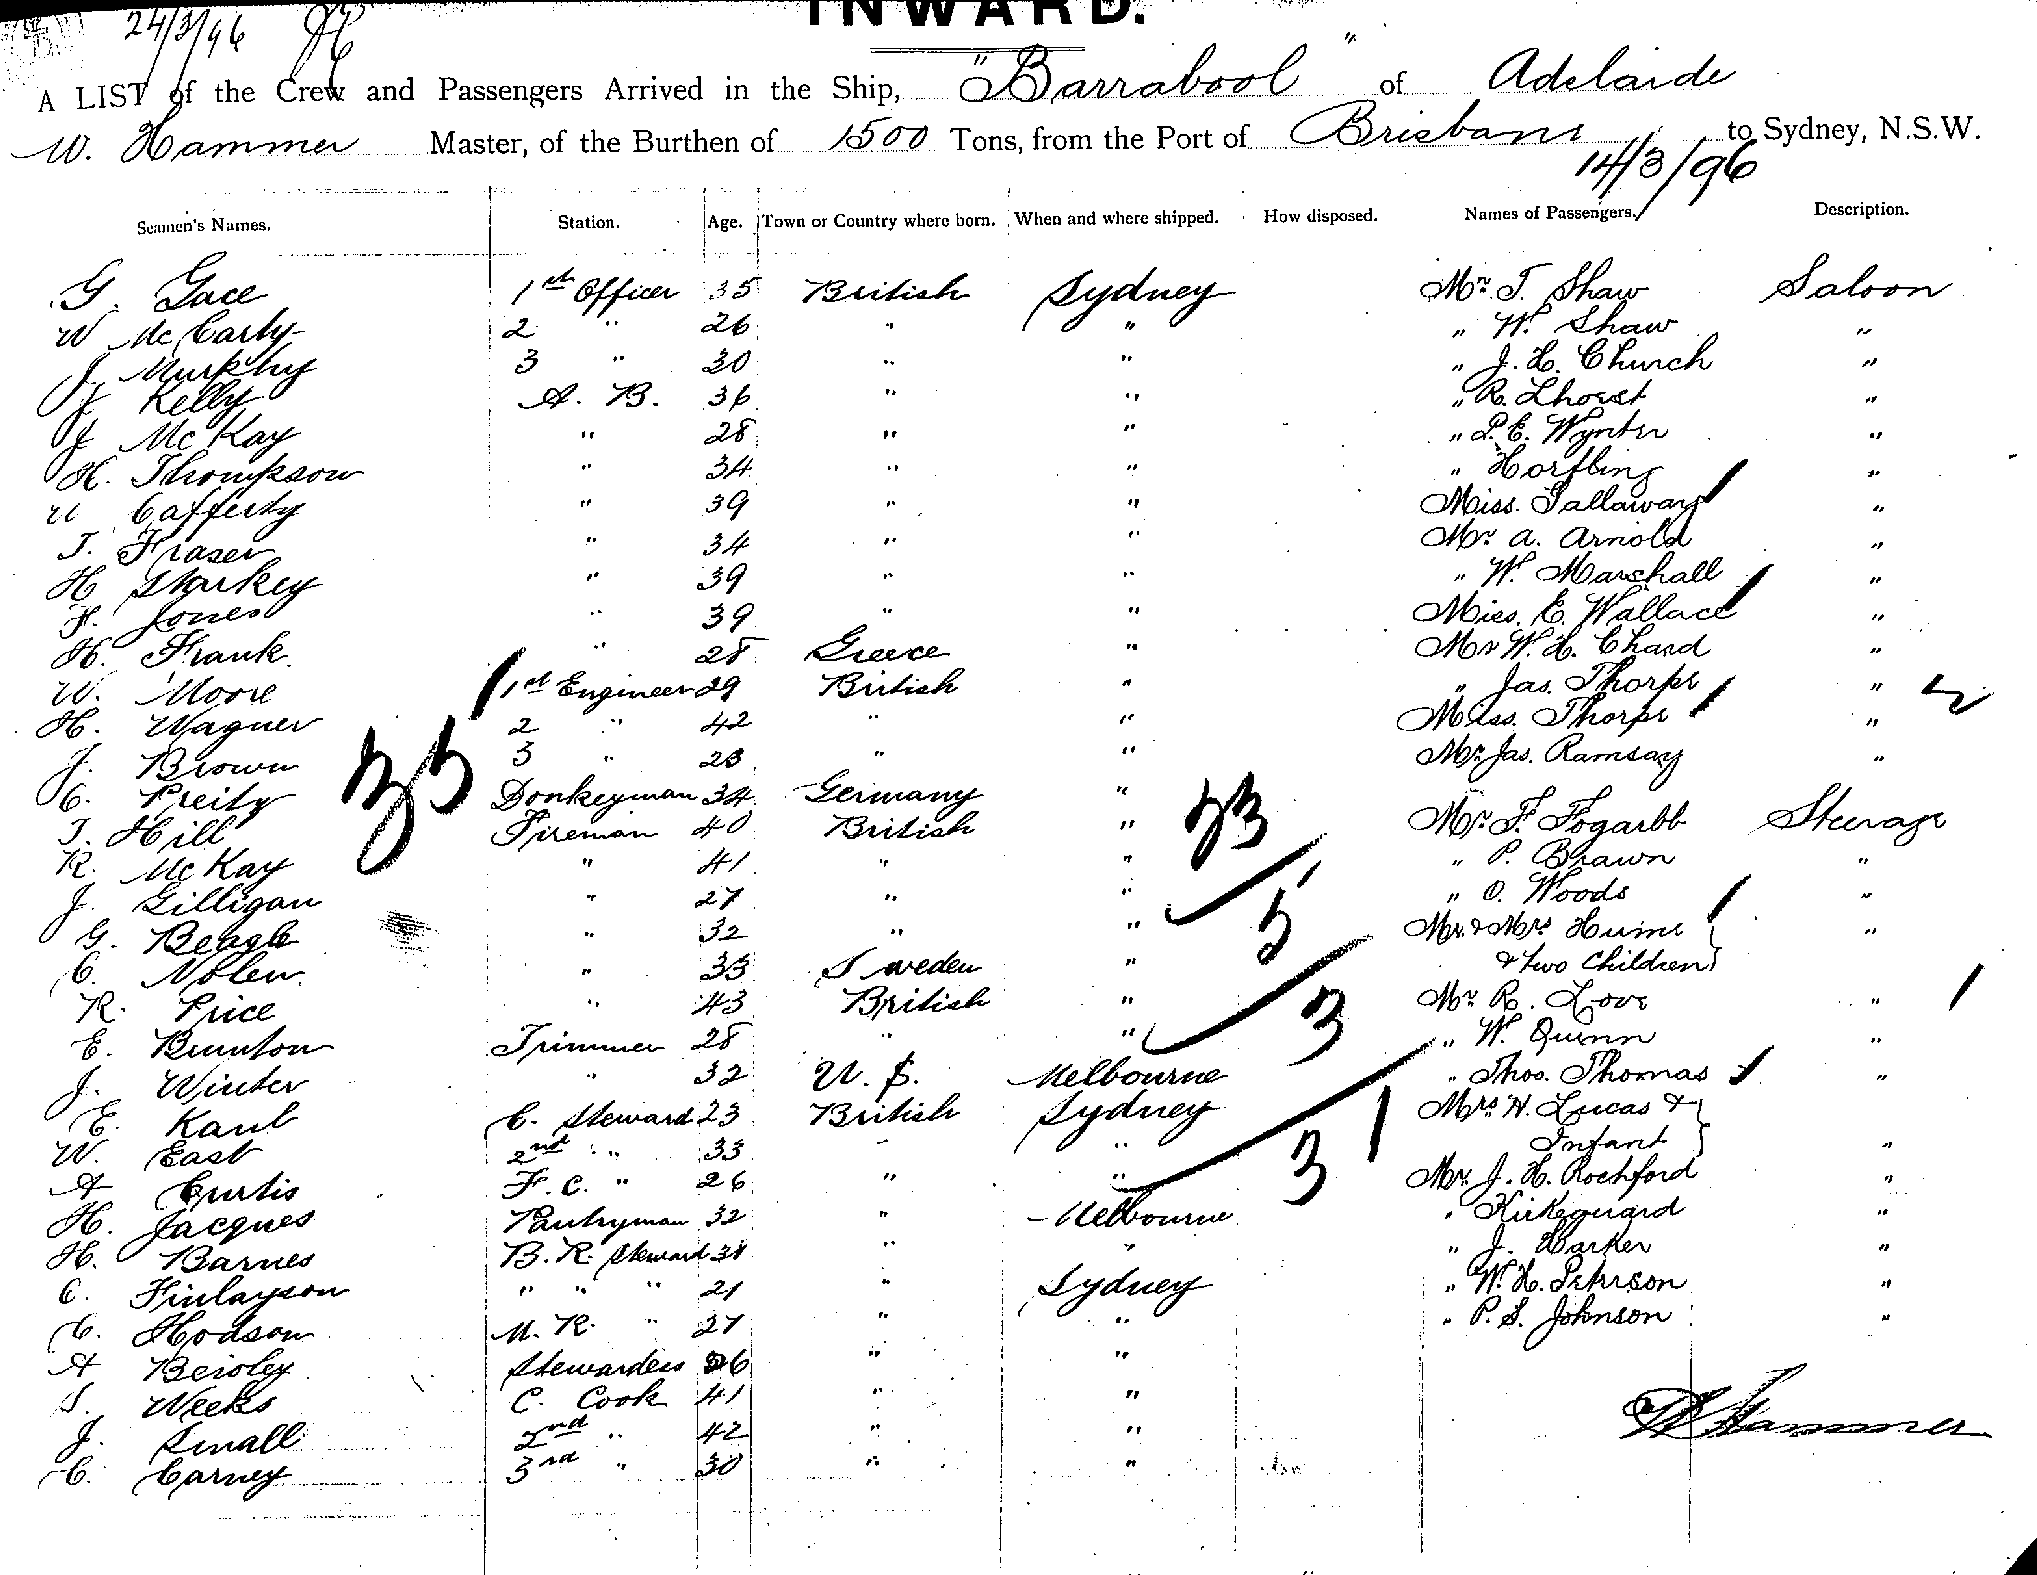 24/3/96
INWARD.
A LIST of the Crew and Passengers Arrived in the Ship, "Barrabool" of Adelaide
W. Hammer Master, of the Burthen of 1500 Tons, from the Port of Brisbane to Sydney, N.S.W.
14/3/96
Seamen's Names. Station. Age. Town or Country where born. When and where shipped. How disposed. Names of Passengers. Description.
G. Gace 1st Officer 35 British Sydney Mr. T. Shaw Saloon
W McCarty 2 " 26 " " " W. Shaw "
J Murphy 3 " 30 " " " J. H. Church "
J Kelly A. B. 36 " " " R. Lhorst "
J McKay " 28 " " " P. E. Wynter "
H. Thompson " 34 " " " Horfling "
Cafferty " 39 " " Miss. Tallaway "
T. Fraser " 34 " " Mr. A. Arnold "
H Sharkey " 39 " " " W. Marshall "
F. Jones " 39 " " Miss. E. Wallace "
H. Frank " 28 Greece " Mr W. H. Chard "
W. Moore 1st Engineer 29 British " " Jas. Thorpe "
H. Wagner 2 " 42 " " Miss. Thorpe "
J. Brown 3 " 23 " " Mr. Jas. Ramsay "
35
C. Donkeyman 34 Germany " Mr. F. Fogarbb Steerage
T. Hill Fireman 40 British " 23
R. McKay " 41 " " " P. Brawn "
J. Gilligan " 27 " " " O. Woods "
G. Beagle " 32 " " 5 Mr. & Mrs Hume "
C. Nolen " 33 Sweden " & two Children
R. Price " 43 British " 3 Mr. R. Love "
E. Brunton Trimmer 28 " " " W. Quinn "
J. Winter " 32 U. S. Melbourne " Thos. Thomas "
E. Kaul C. Steward 23 British Sydney 1 Mrs H. Lucas &
W. East 2nd " 33 " " 3 Infant "
A Curtis F. C. " 26 " " Mr. J. H. Rochford "
H. Jacques Pantryman 32 " Melbourne " Kirkeguard "
H. Barnes B. R. Steward 31 " " " J. Barker "
C. Finlayson " " " 21 " Sydney " W. H. Peterson "
C. Hodson M. R. " 27 " " " P. S. Johnson "
A Beisley Stewardess 26 " "
S. Weeks C. Cook 41 " "
J. Small 2nd " 42 " "
C. Carney 3rd " 30 " "
W Hammer